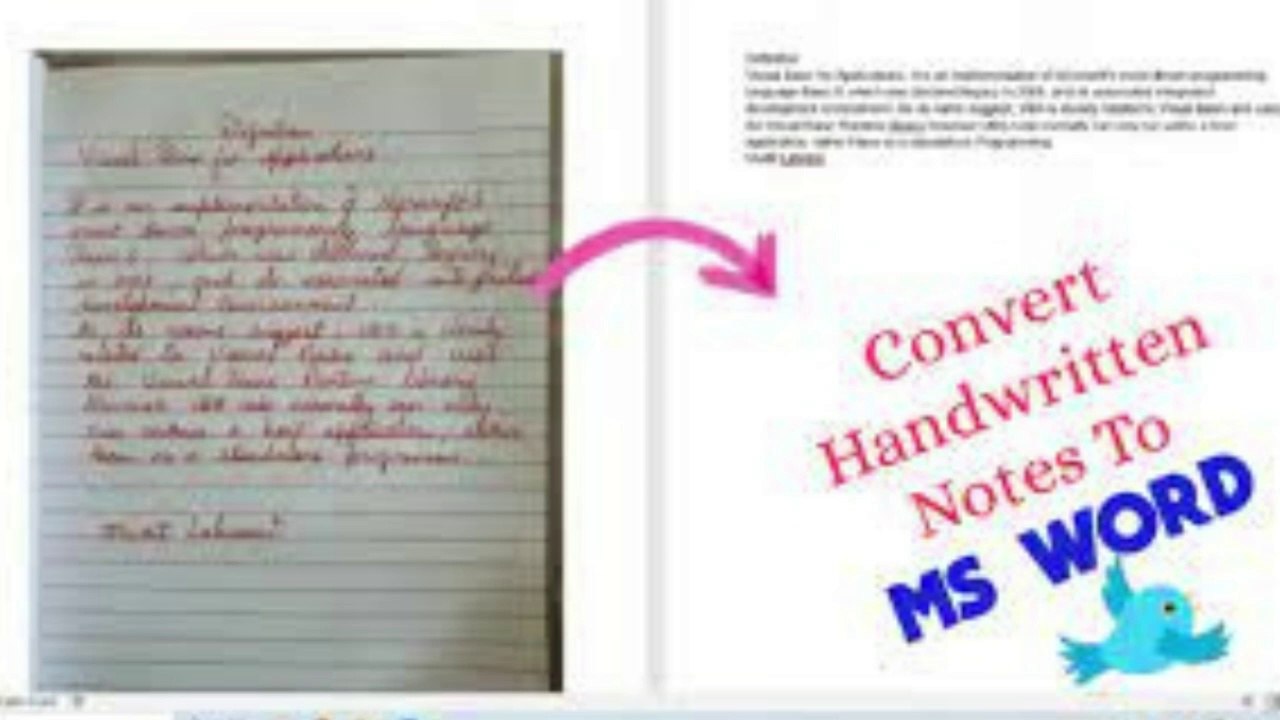 Definition
Visual Basic for Applications
It is an implementation of Microsoft's
event driven programming language
Basic 6, which was declared legacy
in 2008, and its associated integrated
development environment.
As its name suggest, VBA is closely
related to Visual Basic and uses
the Visual Basic Runtime Library
However VBA code normally can only
run within a host application, rather
than as a standalone programme.
Definition
Visual Basic for Applications. It is an implementation of Microsoft's event driven programming
language Basic 6, which was declared legacy in 2008, and its associated integrated
development environment. As its name suggest, VBA is closely related to Visual Basic and uses
the Visual Basic Runtime Library However VBA code normally can only run within a host
application, rather than as a standalone Programming
Convert
Handwritten
Notes To
MS WORD